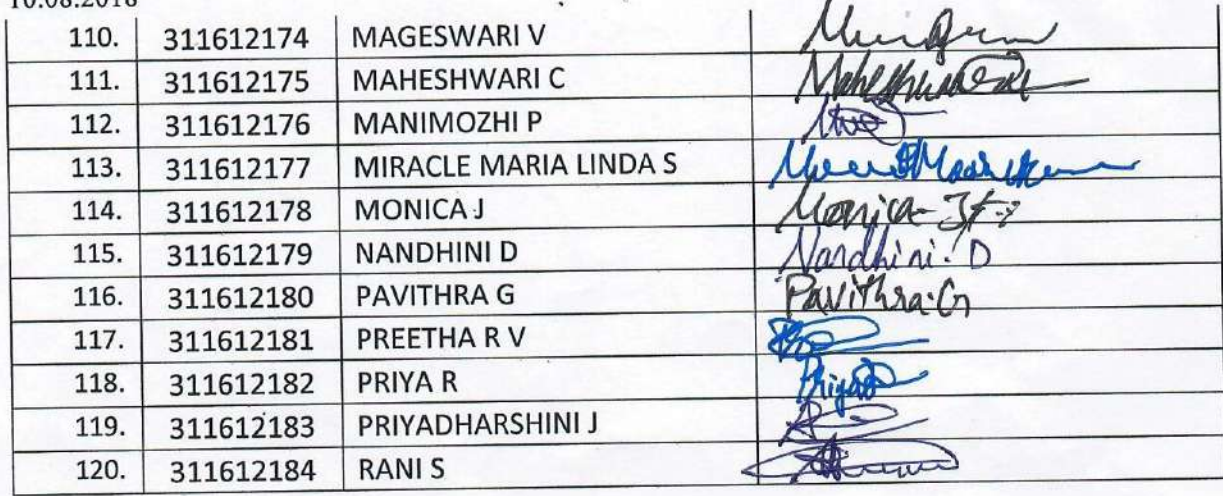 10.08.2018
110. 311612174 MAGESWARI V
111. 311612175 MAHESHWARI C
112. 311612176 MANIMOZHI P
113. 311612177 MIRACLE MARIA LINDA S
114. 311612178 MONICA J Monica
115. 311612179 NANDHINI D Nandhini. D
116. 311612180 PAVITHRA G Pavithra.G
117. 311612181 PREETHA R V
118. 311612182 PRIYA R
119. 311612183 PRIYADHARSHINI J
120. 311612184 RANI S